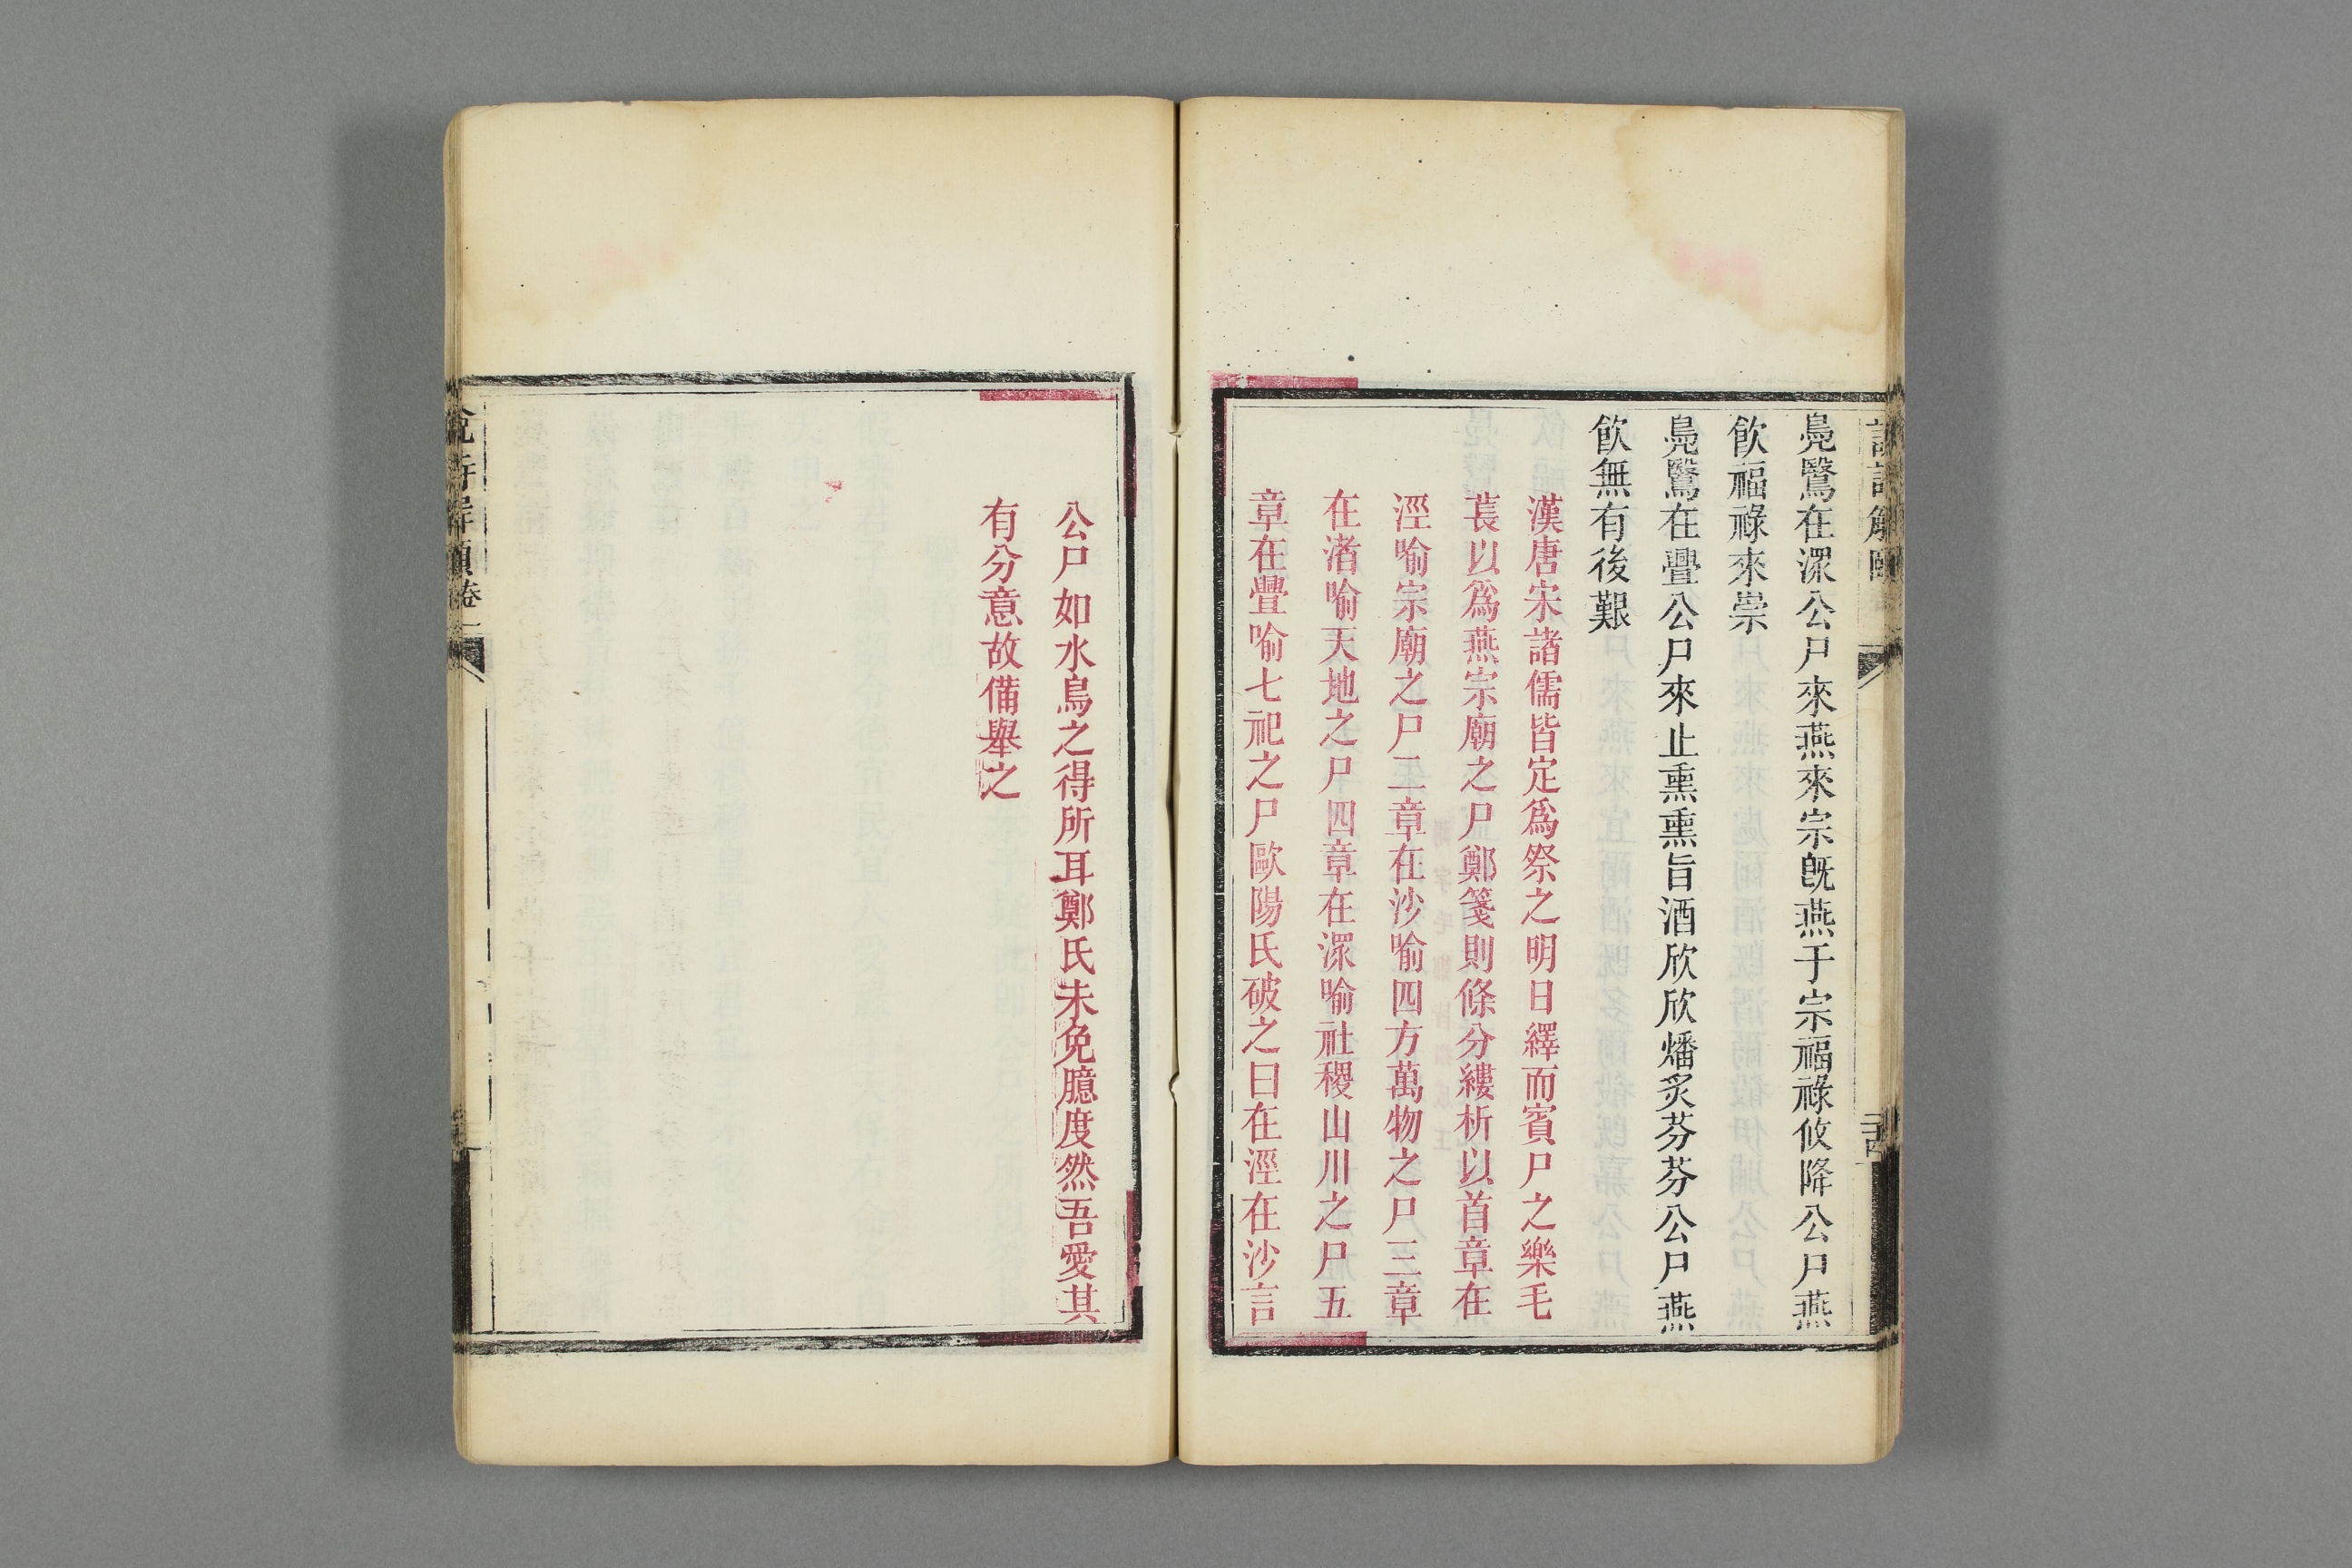 鳧鷖在潀公尸來燕來宗旣燕于宗福祿攸降公尸燕
飮福祿來崇
鳧鷖在亹公尸來止熏熏旨酒欣欣燔炙芬芬公尸燕
飮無有後艱
漢唐宋諸儒皆定爲祭之明日繹而賓尸之樂毛
萇以爲燕宗廟之尸鄭箋則條分縷析以首章在
涇喻宗廟之尸二章在沙喻四方萬物之尸三章
在渚喻天地之尸四章在潀喻社稷山川之尸五
章在亹喻七祀之尸歐陽氏破之曰在涇在沙言
公尸如水鳥之得所耳鄭氏未免臆度然吾愛其
有分意故備舉之